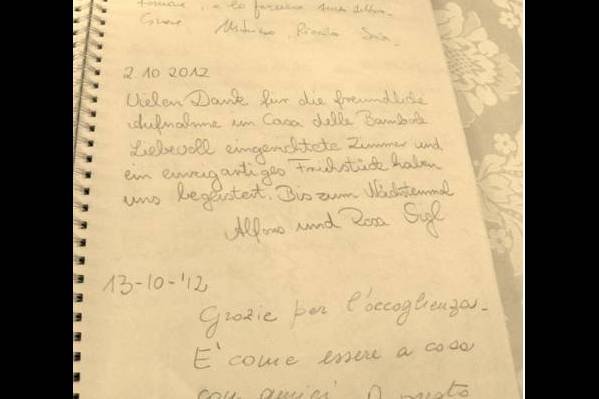 e la
Grazie
2.10.2012
Vielen Dank für die freundliche
Aufnahme im Casa delle Bambole
Liebevoll eingerichtete Zimmer und
ein einzigartiges Frühstück haben
uns begeistert. Bis zum Nächstenmal
Alfons und Rosa Sigl
13-10-'12
Grazie per l'accoglienza.
E' come essere a casa
con amici. A presto